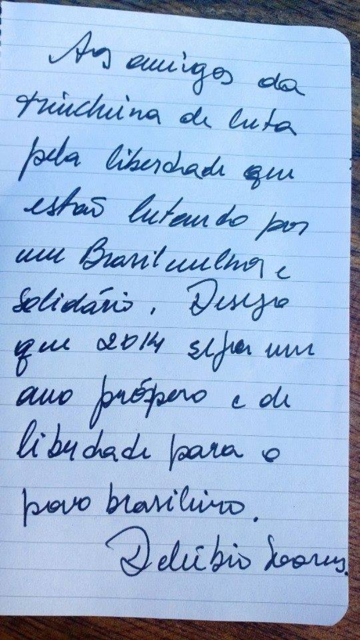 Aos amigos da
trincheira de luta
pela liberdade que
estão lutando por
um Brasil melhor e
solidário. Desejo
que 2014 seja um
ano próspero e de
liberdade para o
povo brasileiro.
Delúbio Soares.